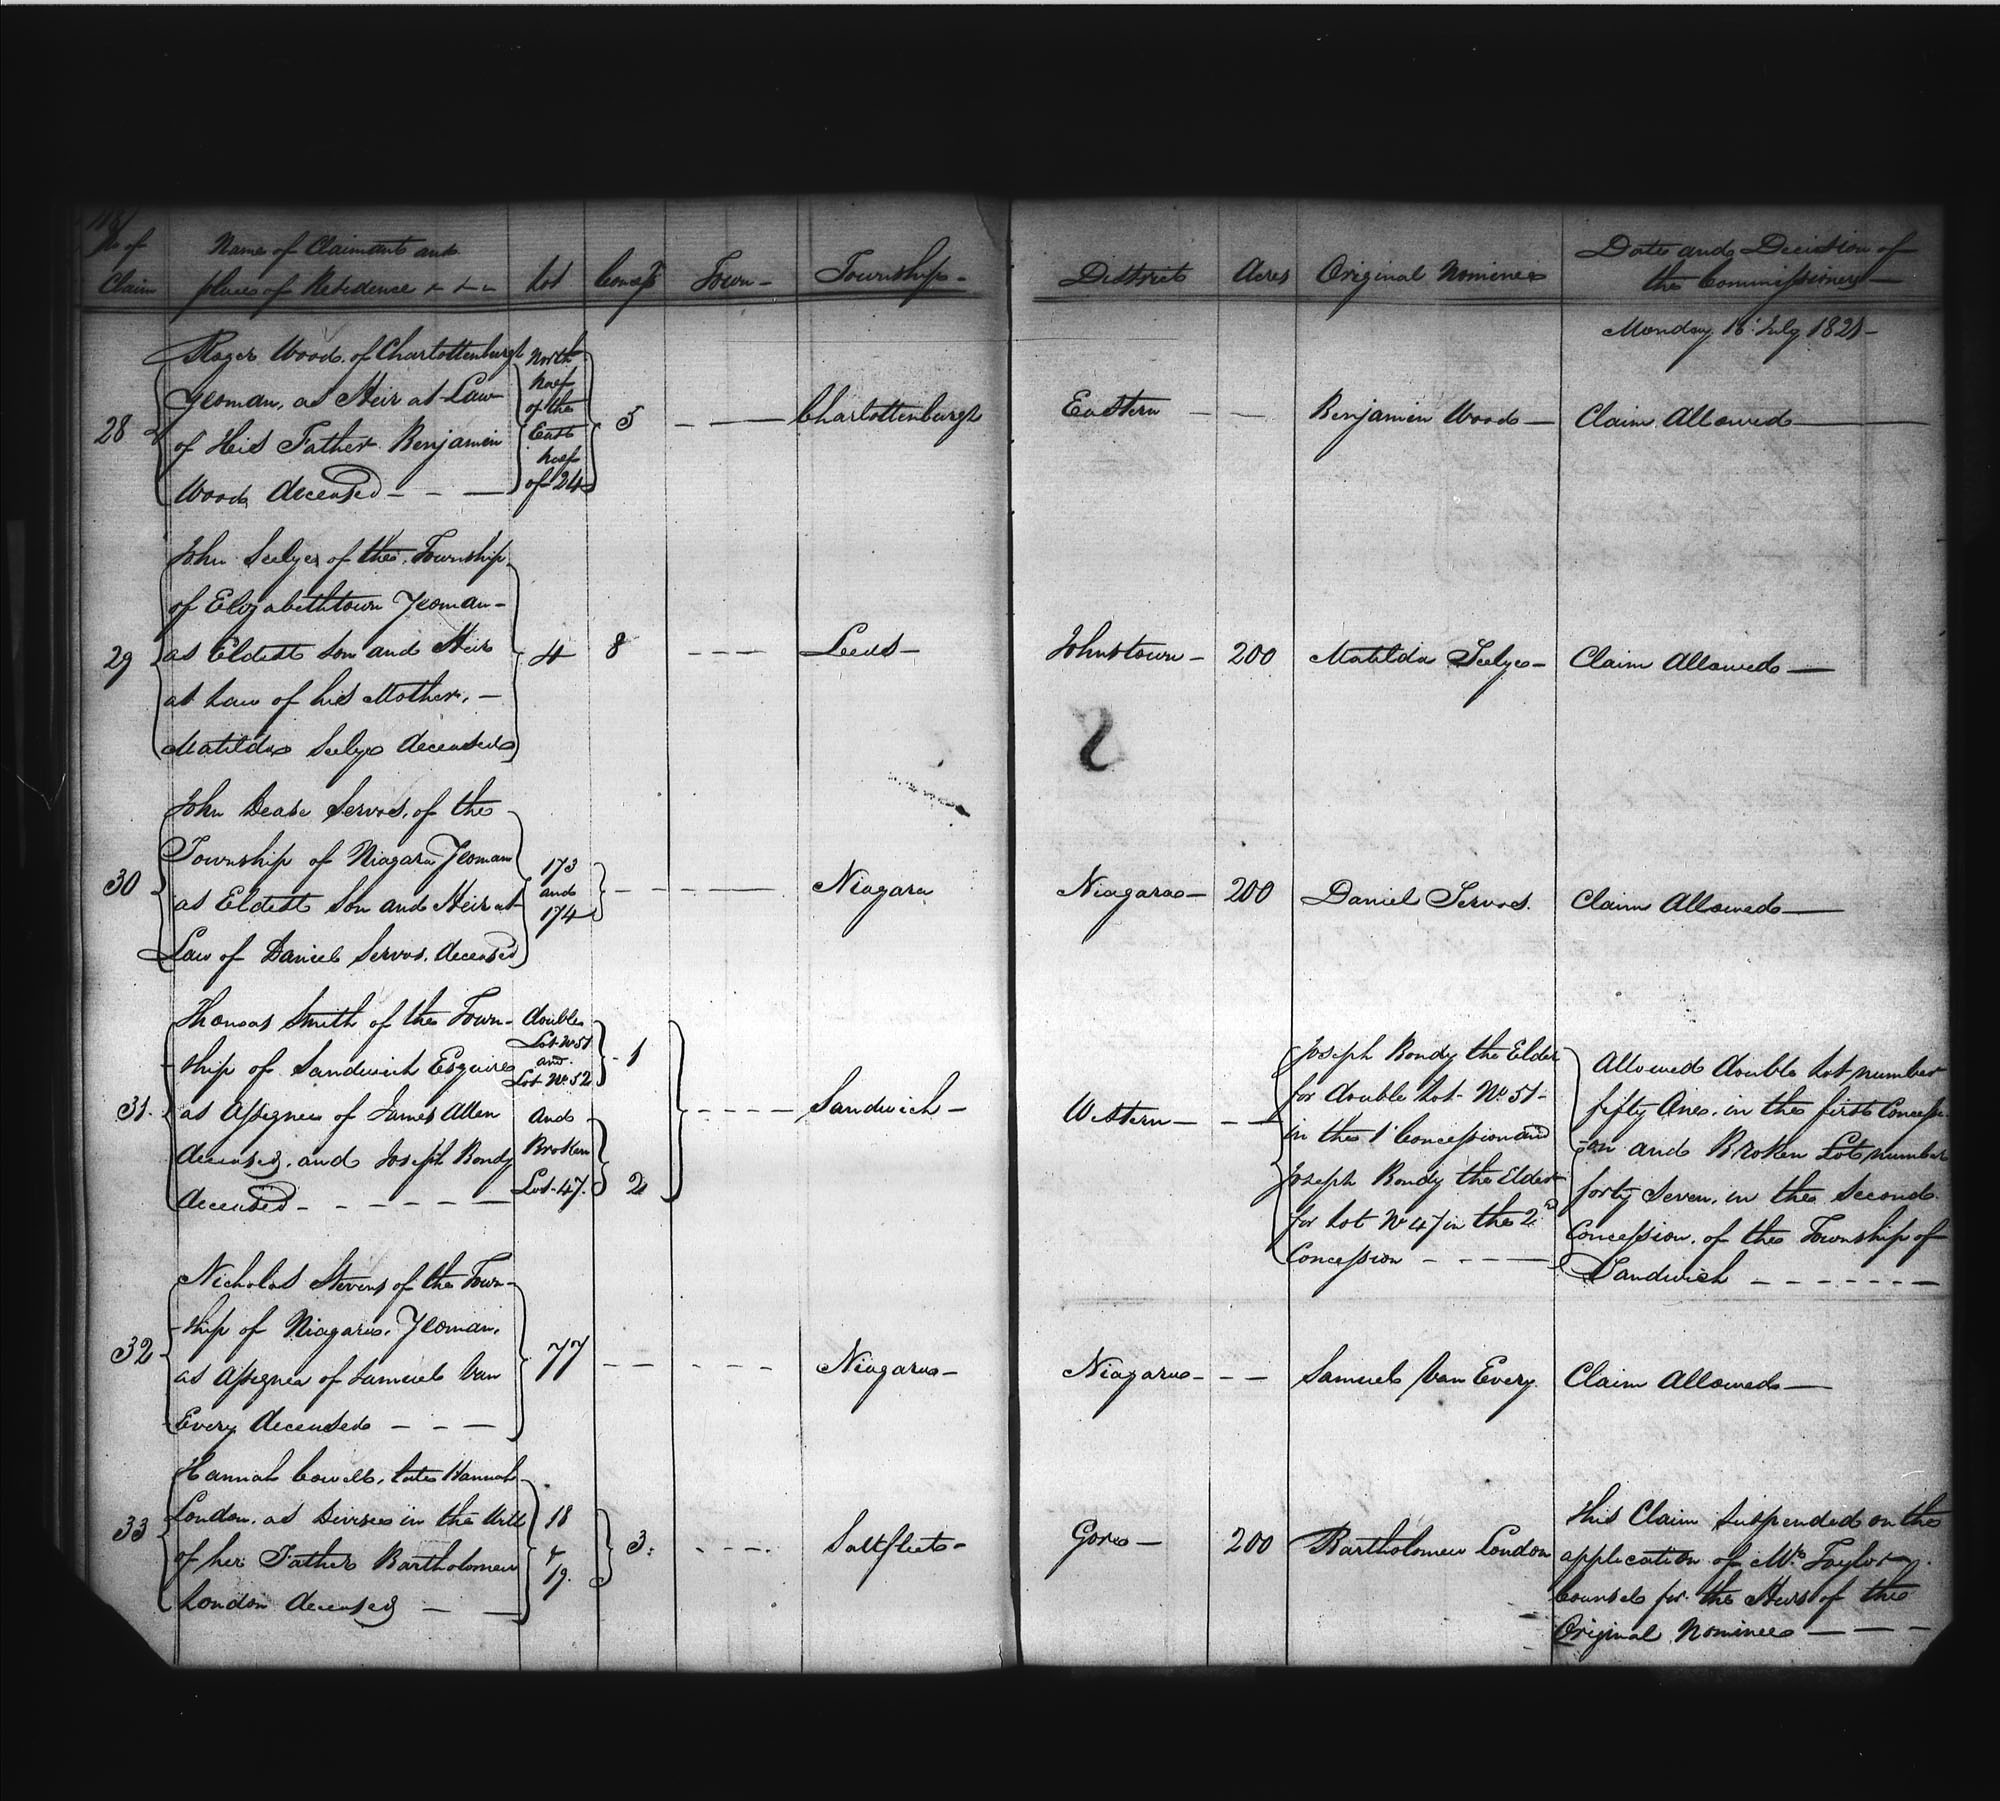 No of Claim
Name of Claimant and
place of Residence
Lot
Concess
Town -
Township -
District
Acres
Original Nominee
Date and Decision of
the Commissioners -
Monday 16 July 1821 -
28
Roger Wood of Charlottenburgh
Yeoman, as Heir at Law
of His Father Benjamin
Wood deceased - - -
North
half
of the
East
half
of 24
5
Charlottenburgh
Eastern - -
Benjamin Wood -
Claim Allowed -
29
John Seelye of the Township
of Elizabethtown Yeoman -
as Eldest son and Heir
at Law of his Mother, -
Matilda Seelye deceased
4
8
- - -
Leeds -
Johnstown -
200
Matilda Seelye -
Claim Allowed -
30
John Dease Servos, of the
Township of Niagara Yeoman
as Eldest Son and Heir at
Law of Daniel Servos, deceased
173
and
174
- - - -
Niagara
Niagara -
200
Daniel Servos.
Claim Allowed -
31.
Thomas Smith of the Town-
ship of Sandwich Esquire
as Assignee of James Allen
deceased, and Joseph Bondy
deceased - - - - -
double
Lot No 51
and
Lot No 52
And
Broken
Lot 47.
1
2
- - - -
Sandwich -
Western - - -
Joseph Bondy the Elder
for double Lot No 51 -
in the 1st Concession and
Joseph Bondy the Elder
for Lot No 47 in the 2d
Concession - - - -
Allowed double Lot number
fifty One, in the first Concessi-
-on and Broken Lot number
forty Seven, in the Second
Concession, of the Township of
Sandwich - - - - - -
32
Nicholas Stevens of the Town-
-ship of Niagara, Yeoman,
as Assignee of Samuel Van
Every deceased - - -
77
- - - - -
Niagara -
Niagara - - -
Samuel Van Every
Claim Allowed -
33
Hannah Cowell, late Hannah
London, as Devisee in the Will
of her Father Bartholomew
London deceased - -
18
&
19.
3.
- - -
Saltfleet -
Gore -
200
Bartholomew London
This Claim suspended on the
application of Mr Taylor
Counsel for the Heirs of the
Original Nominee - - -